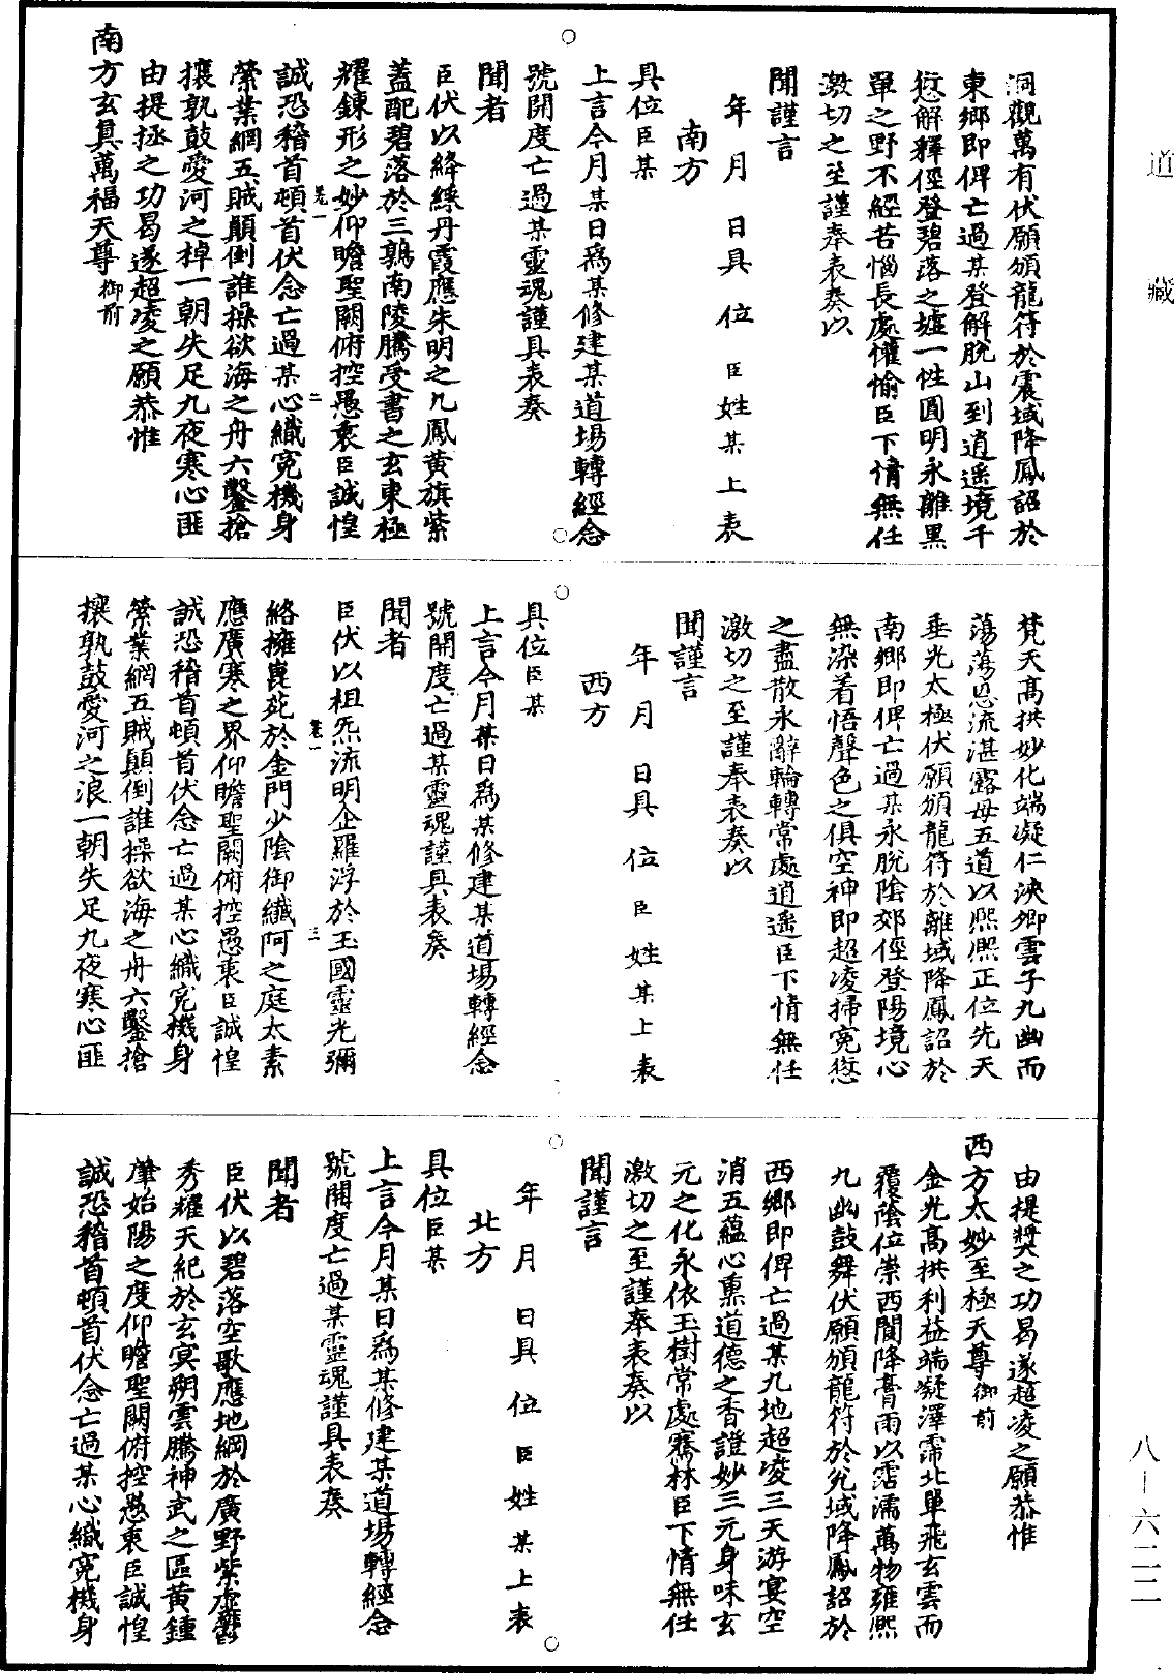 道藏
洞觀萬有伏願頒龍符於震域降鳳詔於
東鄉即俾亡過某登解脫山到逍遥境千
愆解釋徑登碧落之墟一性圓明永離黑
單之野不經苦惱長處懽愉臣下情無任
激切之至謹奉表奏以
聞謹言
年月 日具位臣姓某上表
南方
具位臣某
上言今月某日爲某修建某道場轉經念
號開度亡過某靈魂謹具表奏
聞者
臣伏以絳綵丹霞應朱明之九鳳黄旗紫
蓋配碧落於三鶉南陵騰受書之玄東極
耀鍊形之妙仰瞻聖闕俯控愚衷臣誠惶
卷一 二
誠恐稽首頓首伏念亡過某心織寃機身
縈業網五賊顛倒誰操欲海之舟六鑿搶
攘孰鼓愛河之棹一朝失足九夜寒心匪
由提拯之功曷遂超凌之願恭惟
南方玄真萬福天尊御前
梵天高拱妙化端凝仁浹卿雲子九幽而
蕩蕩恩流湛露母五道以熙熙正位先天
垂光太極伏願頒龍符於離域降鳳詔於
南鄉即俾亡過某永脫陰郊徑登陽境心
無染着悟聲色之俱空神即超凌掃寃愆
之盡散永辭輪轉常處逍遥臣下情無任
激切之至謹奉表奏以
聞謹言
年月 日具位臣姓某上表
西方
具位臣某
上言今月某日爲某修建某道場轉經念
號開度亡過某靈魂謹具表奏
聞者
臣伏以柤炁流明企羅浮於玉國靈光彌
卷一 三
絡擁崑苑於金門少陰御纖阿之庭太素
應廣寒之界仰瞻聖闕俯控愚衷臣誠惶
誠恐稽首頓首伏念亡過某心織寃機身
縈業網五賊顛倒誰操欲海之舟六鑿搶
攘孰鼓愛河之浪一朝失足九夜寒心匪
由提奬之功曷遂超凌之願恭惟
西方太妙至極天尊御前
金光高拱利益端凝澤霈北單飛玄雲而
覆蔭位崇西閬降膏雨以霑濡萬物雍熙
九幽鼓舞伏願頒龍符於兊域降鳳詔於
西鄉即俾亡過某九地超凌三天游宴空
消五藴心熏道德之香證妙三元身味玄
元之化永依玉樹常處騫林臣下情無任
激切之至謹奉表奏以
聞謹言
年月 日具位臣姓某上表
北方
具位臣某
上言今月某日爲某修建某道場轉經念
號開度亡過某靈魂謹具表奏
聞者
臣伏以碧落空歌應地綱於廣野紫虚鬱
秀耀天紀於玄冥朔雲騰神武之區黄鍾
肇始陽之度仰瞻聖闕俯控愚衷臣誠惶
誠恐稽首頓首伏念亡過某心織寃機身
八—六二二